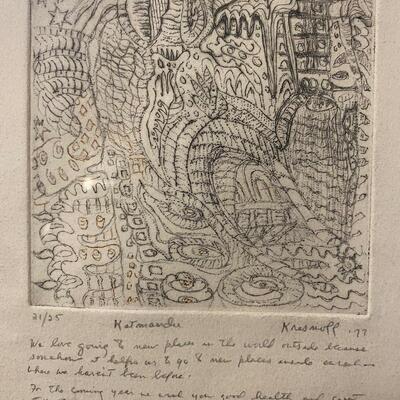 21/25 Katmandu Kresnoff '77
We love going to new places in the world outside because
somehow it helps us to go to new places inside ourselves
where we haven't been before.
For the coming year we wish you good health and